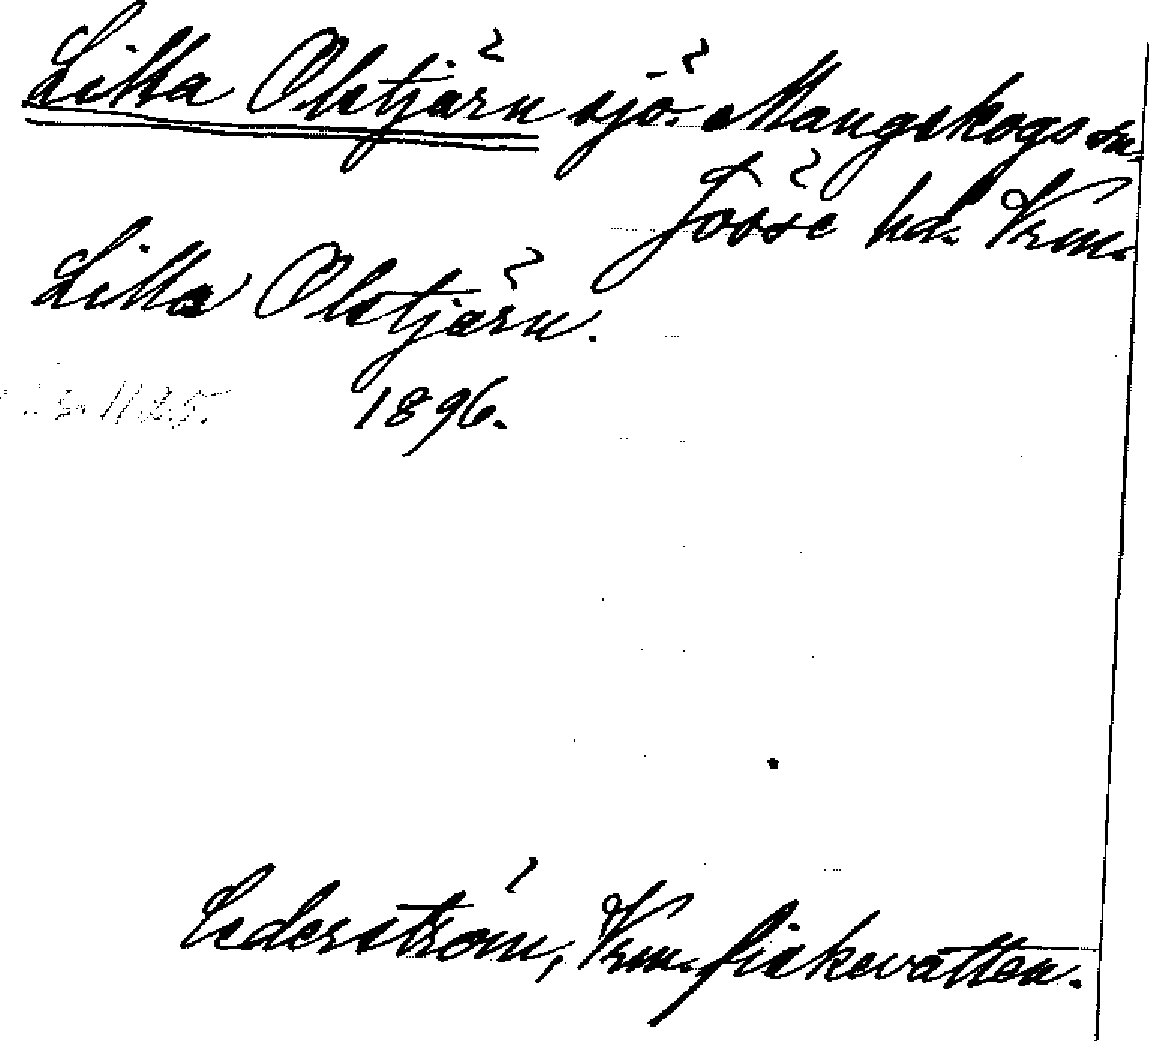 Lilla Olstjärn sjö. Mangskogs sn.
Jösse hd. Vrm.
Lilla Olstjärn.
1896.
Cederström, Vrm. fiskevatten.